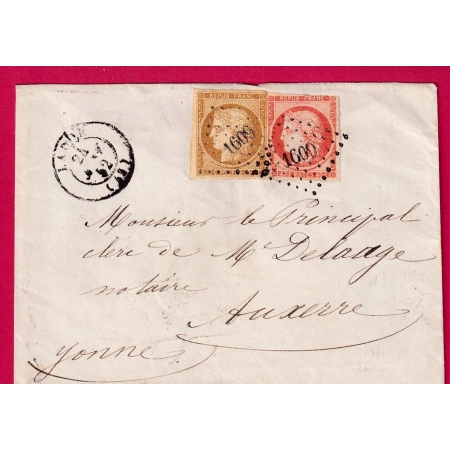 REPUB FRANC
REPUB FRANC
1600
1600
24
Monsieur le Principal
clerc de Me Delaage
notaire
Auxerre
Yonne